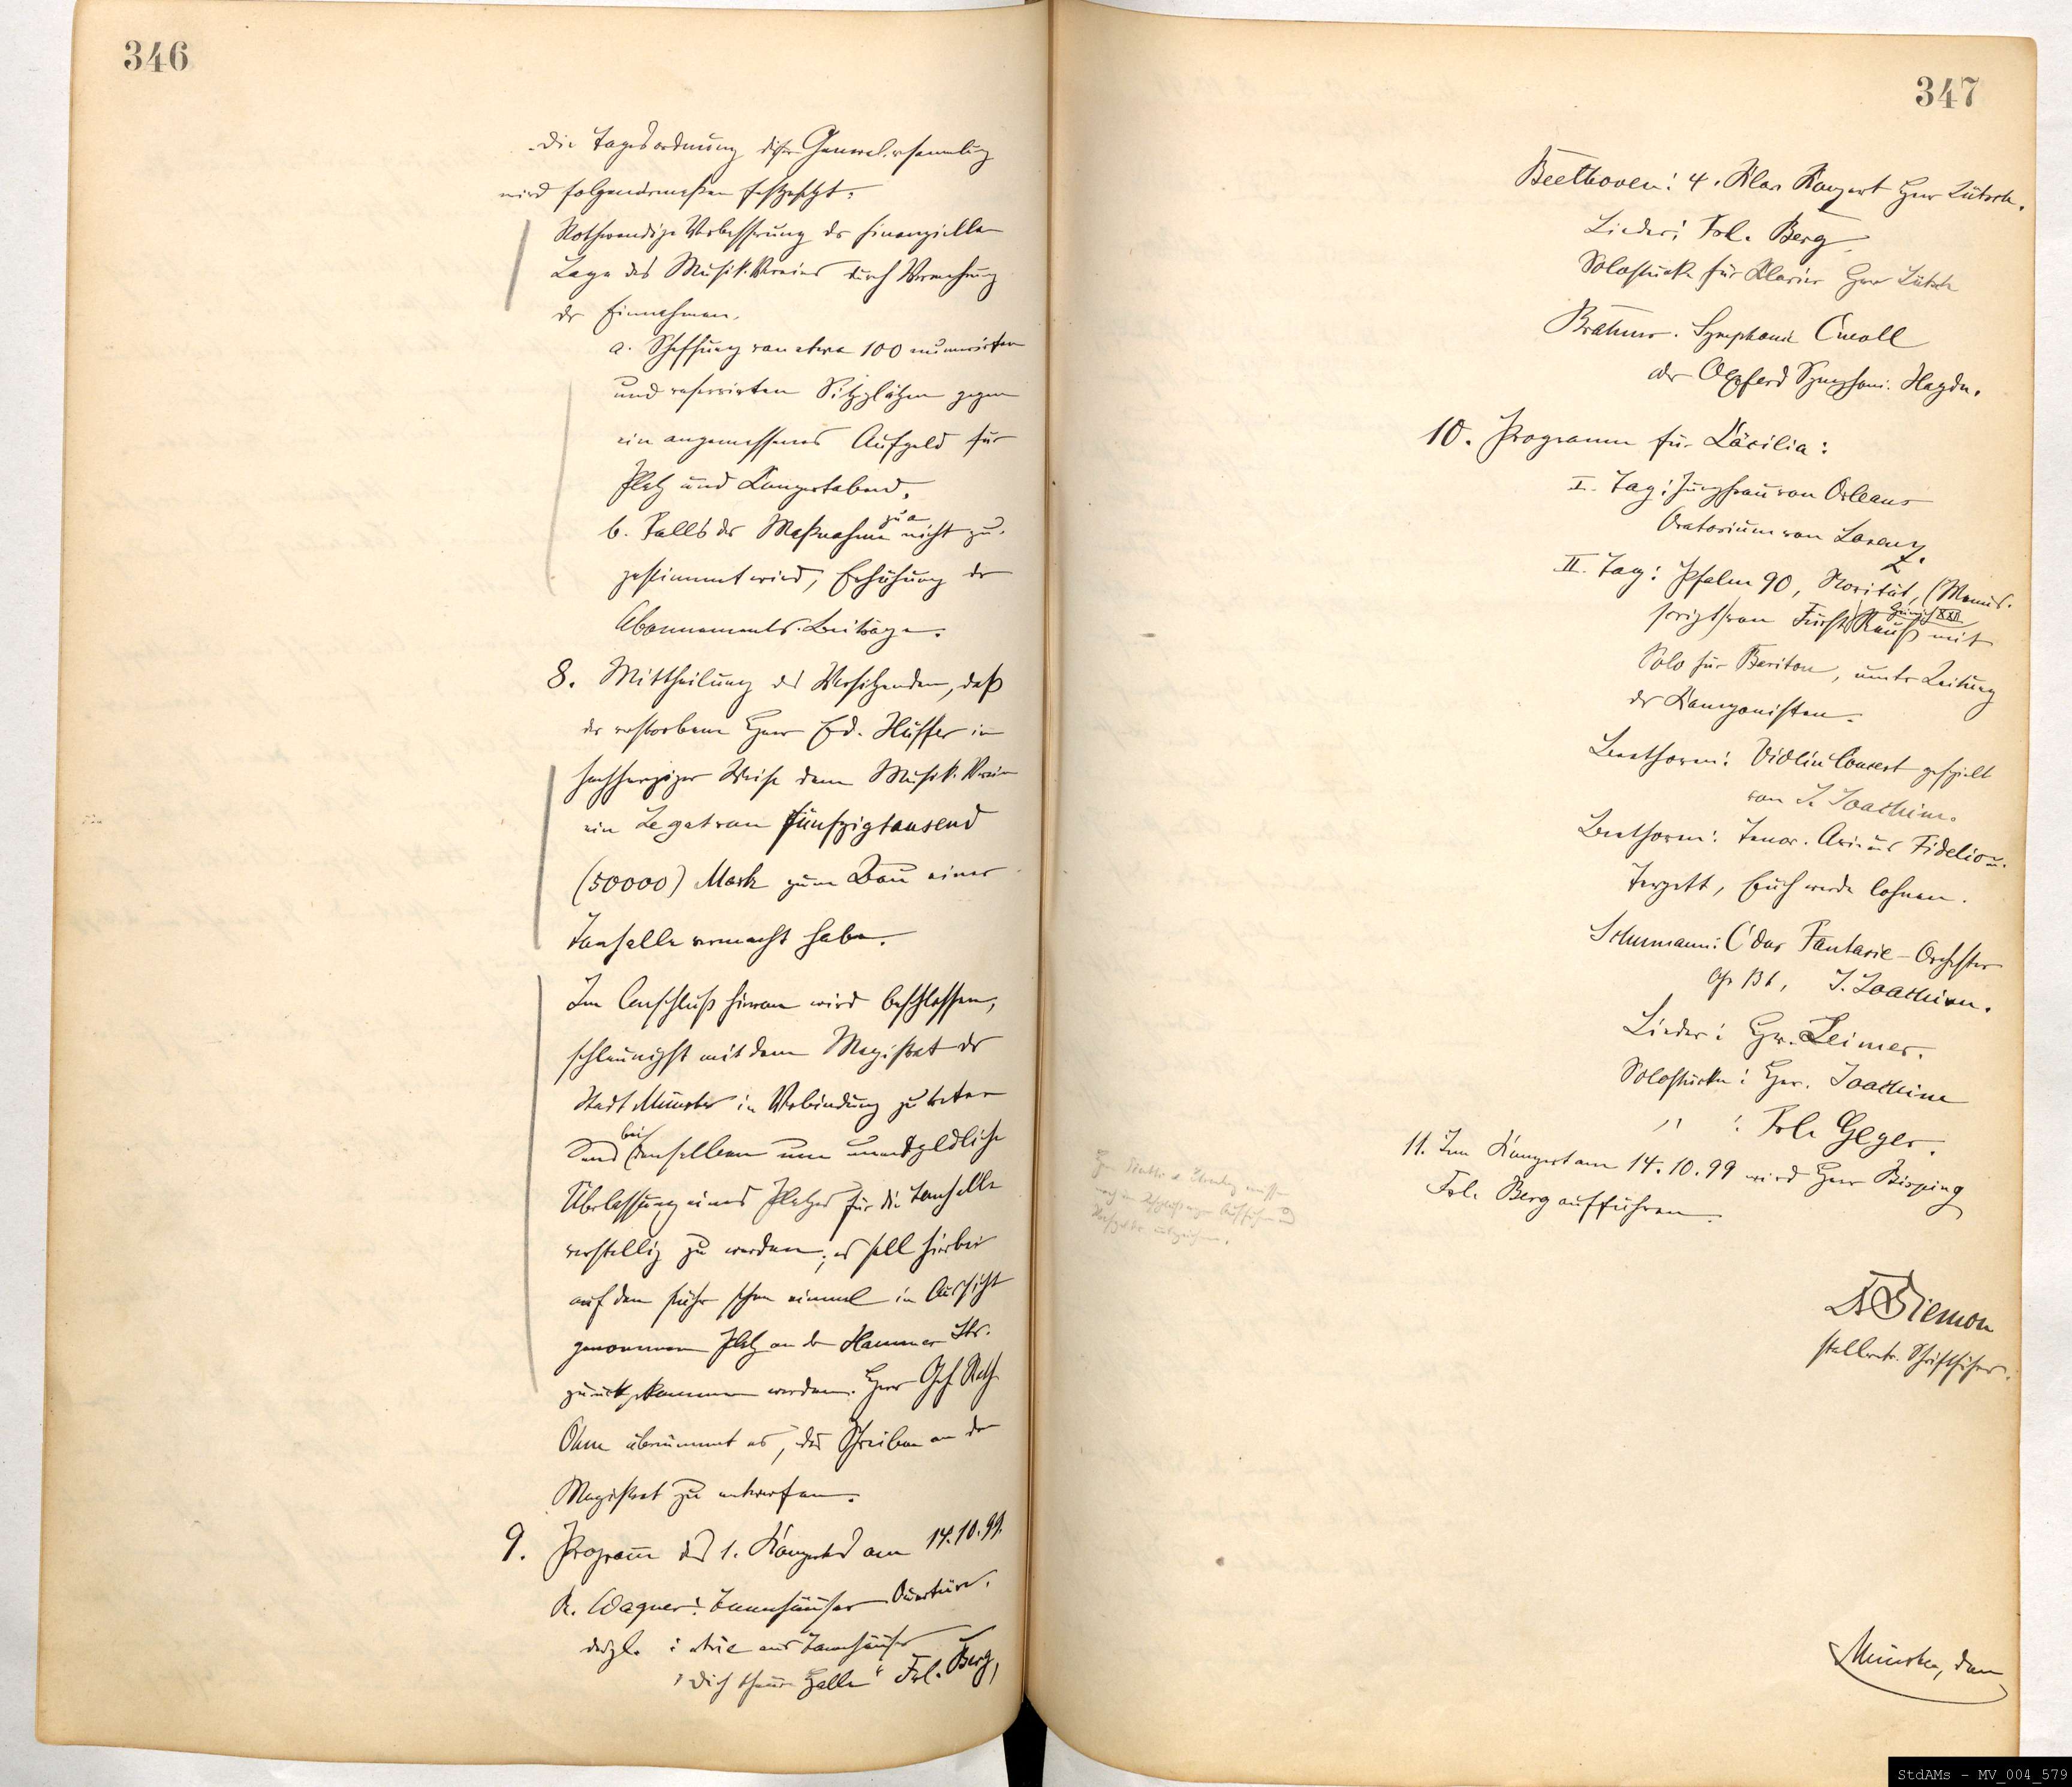 346
Die Tagesordnung dieser Generalversammlung
wird folgendermaßen festgesetzt:
Nothwendige Verbesserung der finanziellen
Lage des Musik-Vereins durch Vermehrung
der Einnahmen.
a. Schaffung von etwa 100 numerirten
und reservirten Sitzplätzen gegen
ein angemessenes Aufgeld für
Platz und Konzertabend.
b. Falls der Maßnahme zu a nicht zu-
gestimmt wird, Erhöhung der
Abonnements-Beiträge.
8. Mittheilung des Vorsitzenden, daß
der verstorbene Herr Ed. Hüffer in
hochherziger Weise dem Musik-Verein
ein Legat von fünfzigtausend
(50000) Mark zum Bau einer
Tonhalle vermacht habe.
Im Anschluß hieran wird beschlossen,
schleunigst mit dem Magistrat der
Stadt Münster in Verbindung zu treten
und bei demselben um unentgeldliche
Überlassung eines Platzes für die Tonhalle
vorstellig zu werden; es soll hierbei
auf den früher schon einmal in Aussicht
genommenen Platz an der Hammer Str.
zurückgekommen werden. Herr Geh. Rath
Ohm übernimmt es, das Schreiben an den
Magistrat zu entwerfen.
9. Programm des 1. Konzertes am 14.10.99.
R. Wagner: Tannhäuser Ouvertüre.
desgl. : Arie aus Tannhäuser
"Dich theure Halle" Frl. Berg,
347
Beethoven: 4. Klav. Konzert Herr Lütsch.
Lieder: Frl. Berg
Solostücke für Klavier Herr Lütsch
Brahms. Symphonie C moll
oder Oxford Symphoni. Haydn.
10. Programm für Cäcilia:
I. Tag: Jungfrau von Orleans
Oratorium von Lorenz.
II. Tag: Psalm 90, Novität, (Manus-
script) von Fürst Heinrich XXIV Reuß mit
Solo für Bariton, unter Leitung
des Komponisten.
Beethoven: Violin Concert gespielt
von J. Joachim.
Beethoven: Tenor-Arie aus Fidelio u.
Terzett, Euch werde Lohn.
Schumann: C dur Fantasie-Orchester
Op 131, J. Joachim.
Lieder: Hr. Leimer.
Solostücke: Herr. Joachim
" : Frl. Geyer.
11. Im Konzert am 14.10.99 wird Herr Bisping
Frl. Berg aufführen.
Dr Diemon
stellvertr. Schriftführer.
Münster, den
StdAMs - MV_004_579